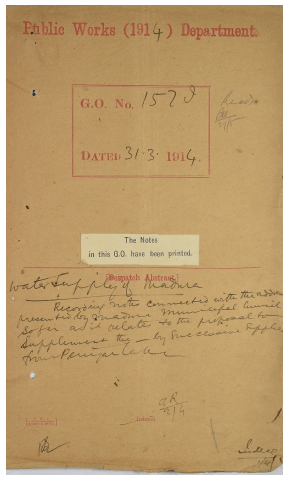 Public Works (1914) Department.
G.O. No. 157 I
Dated 31.3.1914.
The Notes
in this G.O. have been printed.
[Despatch Abstract.]
Water Supply of Madura
Recording notes connected with the address
presented by Madura Municipal Council
so far as it relates to the proposal to
supplement the — by successive supplies
from Periyar Lake